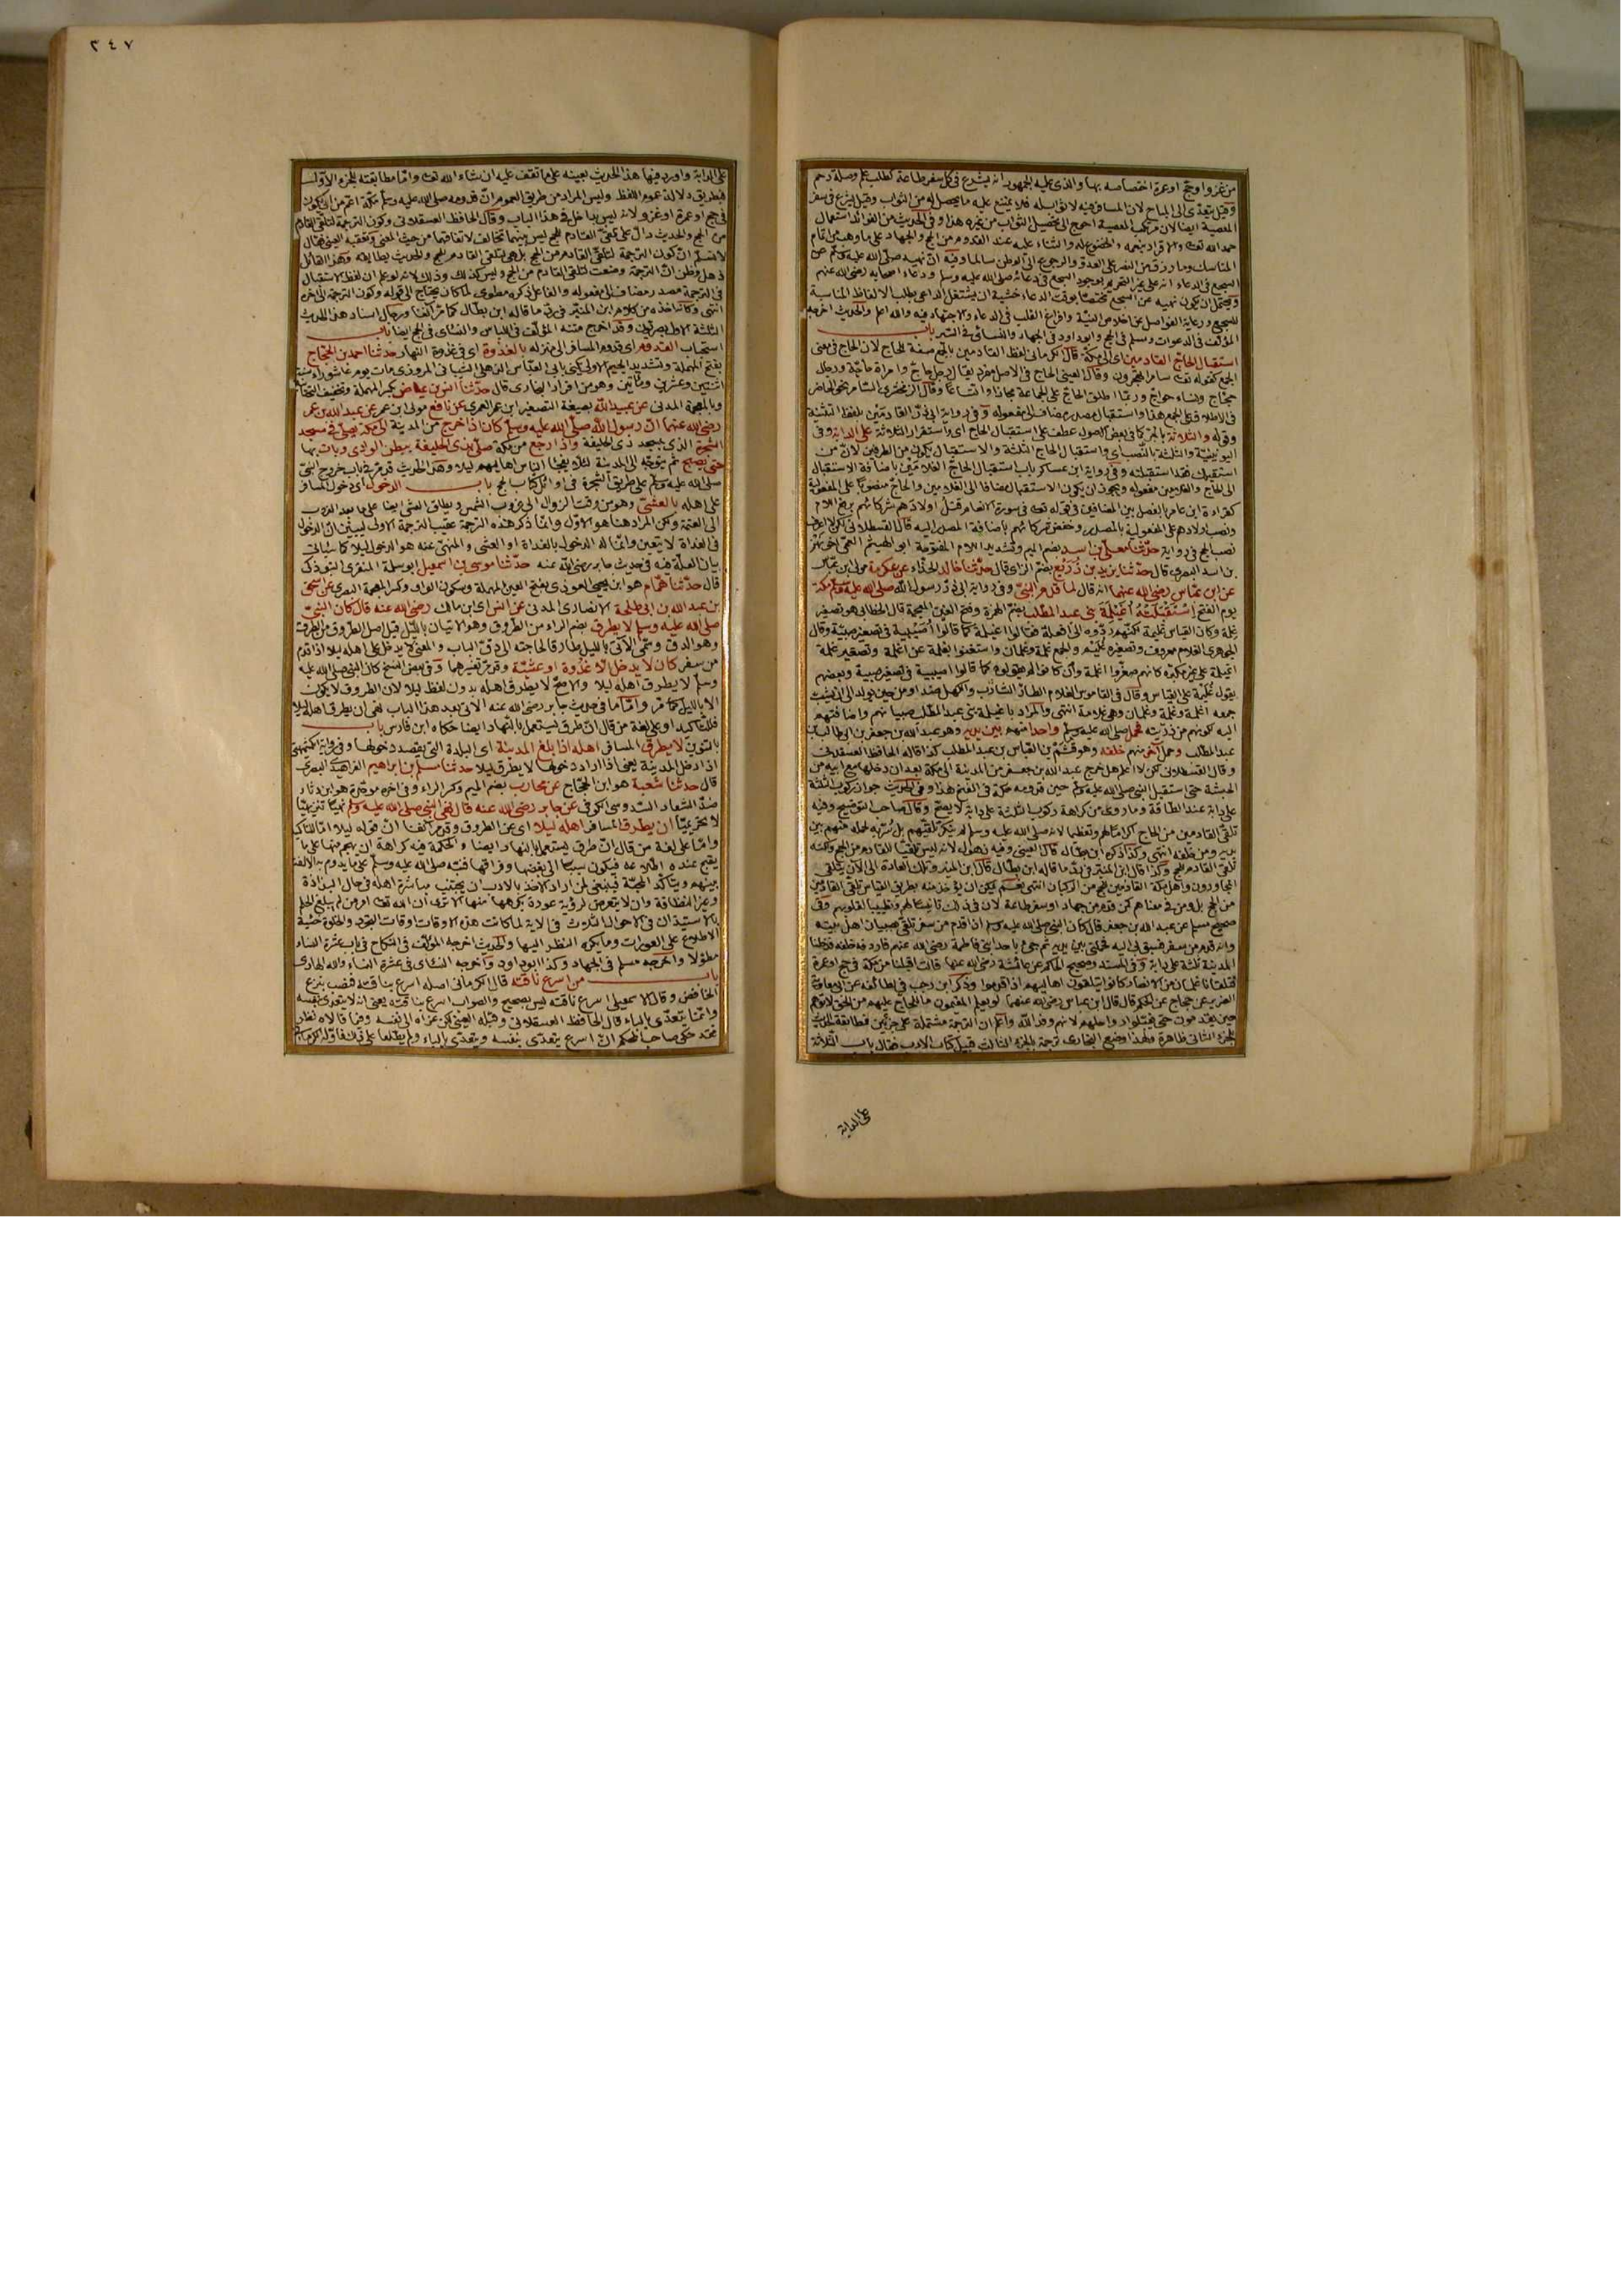 من غزو او حج او عمرة اختصاصه بها والذى عليه الجمهور انه يشرع فى كل سفر طاعة كطلب علم وصلة رحم
وقيل يتعدى الى المباح لان المسافر فيه لا ثواب له فلا يمتنع عليه ما يحصل له من الثواب وقيل يشرع فى سفر
المعصية ايضا لان مرتكب المعصية احوج الى تحصيل الثواب من غيره هذا وفى الحديث من الفوائد استعمال
حمد الله تعالى والاقرار بنعمه والخضوع له والثناء عليه عند القدوم من الحج والجهاد على ما وهب من تمام
المناسك وما رزق من النصر على العدو والرجوع الى الوطن سالما وفيه ان نهيه صلى الله عليه وسلم عن
السجع فى الدعاء انه على غير التحريم لوجود السجع فى دعائه صلى الله عليه وسلم ودعاء اصحابه رضى الله عنهم
ويحتمل ان يكون نهيه عن السجع مختصا بوقت الدعاء خشية ان يشتغل الداعى بطلب الالفاظ المناسبة
للسجع ورعاية الفواصل عن اخلاص النية وافراغ القلب فى الدعاء والاجتهاد فيه والله اعلم والحديث اخرجه
المؤلف فى الدعوات ومسلم فى الحج وابو داود فى الجهاد والنسائى فى السير باب
استقبال الحاج القادمين اى الى مكة قال الكرمانى لفظ القادمين بالجمع صفة للحاج لان الحاج فى معنى
الجمع كقوله تعالى سامرا تهجرون وقال العينى الحاج فى الاصل مفرد يقال رجل حاج وامرأة حاجة ورجال
حجاج ونساء حواج وربما اطلق الحاج على الجماعة مجازا واتساعا
وقوله والثلاثة بالجر كما فى بعض الاصول عطف على استقبال الحاج اى واستقرار الثلاثة على الدابة وفى
اليونينية والثلاثة بالنصب اى واستقبال الحاج الثلاثة والاستقبال يكون من الطرفين لان من
استقبلك فقد استقبلته وفى رواية ابن عساكر باب استقبال الحاج الغلامين باضافة الاستقبال
الى الحاج والغلامين مفعوله ويجوز ان يكون الاستقبال مضافا الى الغلامين والحاج منصوبا على المفعولية
كقراءة ابن عامر بالفصل بين المضافين فى قوله تعالى فى سورة الانعام قتل اولادهم شركائهم برفع اللام
ونصب اولادهم على المفعولية بالمصدر وخفض شركائهم باضافة المصدر اليه قال القسطلانى لكن لا اعرف
نصب الحج فى رواية حدثنا معلى بن اسد بضم الميم وتشديد اللام المفتوحة ابو الهيثم العمى اخو بهز
بن اسد البصرى قال حدثنا يزيد بن زريع بضم الزاى قال حدثنا خالد الحذاء عن عكرمة مولى ابن عباس
عن ابن عباس رضى الله عنهما انه قال لما قدم النبى وفى رواية ابى ذر رسول الله صلى الله عليه وسلم مكة
يوم الفتح استقبلته اغيلمة بنى عبد المطلب بضم الهمزة وفتح الغين المعجمة قال الخطابى هو تصغير
غلمة وكان القياس غليمة لكنهم ردوه الى افعلة فقالوا اغيلمة كما قالوا اصيبية فى تصغير صبية وقال
الجوهرى الغلام معروف وتصغيره غليم والجمع غلمة وغلمان واستغنوا بغلمة عن اغلمة وتصغير غلمة
اغيلمة على غير مكبره كانهم صغروا اغلمة وان كانوا لم يقولوه كما قالوا اصيبية فى تصغير صبية وبعضهم
يقول غليمة على القياس وقال فى القاموس الغلام الطار الشارب والكهل ضد او من حين يولد الى ان يشيب
جمعه اغلمة وغلمة وغلمان وهى غلامة انتهى والمراد باغيلمة بنى عبد المطلب صبيانهم واضافتهم
اليه لكونهم من ذريته فحمل صلى الله عليه وسلم واحدا منهم بين يديه وهو عبد الله بن جعفر بن ابى طالب بن
عبد المطلب وحمل آخر منهم خلفه وهو قثم بن العباس بن عبد المطلب كذا قاله الحافظ العسقلانى
وقال القسطلانى لكن لا اعلم هل خرج عبد الله بن جعفر من المدينة الى مكة بعد ان دخلها مع ابيه من
الحبشة حتى استقبل النبى صلى الله عليه وسلم حين قدومه مكة فى الفتح هذا وفى الحديث جواز ركوب الثلاثة
على دابة عند الطاقة وما روى من كراهة ركوب الثلاثة على دابة لا يصح وقال صاحب التوضيح وفيه
تلقى القادمين من الحاج اكراما لهم وتعظيما لانه صلى الله عليه وسلم لم ينكر تلقيهم بل سر به لحمله منهم بين
يديه ومن خلفه انتهى وكذا ذكره ابن بطال قال العينى وفيه ذهول لانه ليس تلقيا للقادم من الحج ولكنه
تلقى القادم للحج وكذا قال ابن المنير فى رد ما قاله ابن بطال قال ابن المنير وتلك العادة الى الآن يتلقى
المجاورون واهل مكة القادمين للحج من الركبان انتهى نعم يمكن ان يؤخذ منه بطريق القياس تلقى القادمين
من الحج بل ومن فى معناهم كمن قدم من جهاد او سفر طاعة لان فى ذلك تانيسا لهم وتطييبا لقلوبهم وفى
صحيح مسلم عن عبد الله بن جعفر قال كان النبى صلى الله عليه وسلم اذا قدم من سفر تلقى بصبيان اهل بيته
وانه قدم من سفر فسبق بى اليه فحملنى بين يديه ثم جئ باحد ابنى فاطمة رضى الله عنهم فاردفه خلفه فدخلنا
المدينة ثلثة على دابة وفى المسند وصحيح الحاكم عن عائشة رضى الله عنها قالت اقبلنا من مكة فى حج او عمرة
فتلقانا غلمان من الانصار كانوا يتلقون اهاليهم اذا قدموا وذكر ابن رجب فى لطائفه عن ابى معاوية
الضرير عن حجاج عن الحكم قال قال ابن عباس رضى الله عنهما لو يعلم المقيمون ما للحاج عليهم من الحق لاتوهم
حين يقدمون حتى يقبلوا رواحلهم لانهم وفد الله واعلم ان الترجمة مشتملة على جزئين فمطابقة الحديث
للجزء الثانى ظاهرة ولهذا وضع البخارى ترجمة بالجزء الثالث قبيل كتاب الادب فقال باب الثلاثة
على الدابة
٢٤٧
على الدابة واورد فيها هذا الحديث بعينه على ما تقف عليه ان شاء الله تعالى واما مطابقته للجزء الاول
فبطريق دلالة عموم اللفظ وليس المراد من طريق العموم ان قدومه صلى الله عليه وسلم مكة اعم من ان يكون
فى حج او عمرة او غزو لانه ليس بداخل فى هذا الباب وقال الحافظ العسقلانى وكون الترجمة لتلقى القادم
من الحج والحديث دال على تلقى القادم للحج ليس بينهما تخالف لاتفاقهما من حيث المعنى وتعقبه العينى فقال
لا نسلم ان كون الترجمة لتلقى القادم من الحج بل هى لتلقى القادم للحج والحديث يطابقه وهذا القائل
ذهل وظن ان الترجمة وضعت لتلقى القادم من الحج وليس كذلك وذلك لانه لو علم ان لفظ الاستقبال
فى الترجمة مصدر مضاف الى مفعوله والفاعل ذكره مطوى لما كان يحتاج الى قوله وكون الترجمة الى آخره
انتهى وكأنه اخذه من كلام ابن المنير فى رد ما قاله ابن بطال كما مر آنفا ورجال اسناد هذا الحديث
الثلاثة الاول بصريون وقد اخرج متنه المؤلف فى اللباس والنسائى فى الحج ايضا باب
استحباب القدوم اى قدوم المسافر الى منزله بالغدوة اى فى غدوة النهار حدثنا احمد بن الحجاج
بفتح المهملة وتشديد الجيم الاولى يكنى بابى العباس الذهلى الشيبانى المروزى مات يوم عاشوراء سنة
اثنتين وعشرين ومائتين وهو من افراد البخارى قال حدثنا انس بن عياض بكسر المهملة وتخفيف التحتية
وبالمعجمة المدنى عن عبيد الله بصيغة التصغير ابن عمر العمرى عن نافع مولى ابن عمر عن عبد الله بن عمر
رضى الله عنهما ان رسول الله صلى الله عليه وسلم كان اذا خرج من المدينة الى مكة يصلى فى مسجد
الشجرة الذى بمسجد ذى الحليفة واذا رجع من مكة صلى بذى الحليفة ببطن الوادى وبات بها
حتى يصبح ثم يتوجه الى المدينة لئلا يفجأ الناس اهاليهم ليلا وهذا الحديث قد مر فى باب خروج النبى
صلى الله عليه وسلم على طريق الشجرة فى اوائل كتاب الحج باب الدخول اى دخول المسافر
على اهله بالعشى وهو من وقت الزوال الى غروب الشمس ويطلق العشى ايضا على ما بعد الغروب
الى العتمة ولكن المراد هنا هو الاول وانما ذكر هذه الترجمة عقيب الترجمة الاولى ليبين ان الدخول
فى الغداة لا يتعين وانما له الدخول بالغداة او العشى والمنهى عنه هو الدخول ليلا كما سيأتى
بيان العلة فيه فى حديث جابر رضى الله عنه حدثنا موسى بن اسمعيل ابو سلمة المنقرى التبوذكى
قال حدثنا همام هو ابن يحيى العوذى بفتح العين المهملة وسكون الواو وكسر المعجمة البصرى عن اسحق
بن عبد الله بن ابى طلحة الانصارى المدنى عن انس اى ابن مالك رضى الله عنه قال كان النبى
صلى الله عليه وسلم لا يطرق بضم الراء من الطروق وهو الاتيان بالليل قيل اصل الطروق من الطرق
وهو الدق وسمى الآتى بالليل طارقا لحاجته الى دق الباب والمعنى لا يدخل على اهله ليلا اذا قدم
من سفر كان لا يدخل الا غدوة او عشية وقد مر تفسيرهما وفى بعض النسخ كان النبى صلى الله عليه
وسلم لا يطرق اهله ليلا والاصح لا يطرق اهله بدون لفظ ليلا لان الطروق لا يكون
الا بالليل كما مر واما ما فى حديث جابر رضى الله عنه الآتى بعد هذا الباب نهى ان يطرق اهله ليلا
فللتأكيد او على لغة من قال ان طرق يستعمل بالنهار ايضا حكاه ابن فارس باب
بالتنوين لا يطرق المسافر اهله اذا بلغ المدينة اى البلدة التى يقصد دخولها وفى رواية الكشميهنى
اذا دخل المدينة يعنى اذا اراد دخولها لا يطرق ليلا حدثنا مسلم بن ابراهيم الفراهيدى البصرى
قال حدثنا شعبة هو ابن الحجاج عن محارب بضم الميم وكسر الراء وفى اخره موحدة هو ابن دثار
ضد الشعار السدوسى الكوفى عن جابر رضى الله عنه قال نهى النبى صلى الله عليه وسلم نهيا تنزيهيا
لا تحريميا ان يطرق المسافر اهله ليلا اى عن الطروق وقد مر آنفا ان قوله ليلا اما للتأكيد
واما على لغة من قال ان طرق يستعمل بالنهار ايضا والحكمة فيه كراهة ان يهجم منها على ما
يقبح عنده اطلاعه فيكون سببا الى بغضها وفراقها فنبه صلى الله عليه وسلم على ما يدوم به الالفة
بينهم ويتأكد المحبة فينبغى لمن اراد الاخذ بالادب ان يجتنب مباشرة اهله فى حال البذاذة
وغير النظافة وان لا يتعرض لرؤية عورة يكرهها منها الا ترى ان الله تعالى امر من لم يبلغ الحلم
بالاستيذان فى الاحوال الثلاث فى الآية لما كانت هذه الاوقات اوقات التجرد والخلوة خشية
الاطلاع على العورات وما يكره النظر اليها والحديث اخرجه المؤلف فى النكاح فى باب عشرة النساء
مطولا واخرجه مسلم فى الجهاد وكذا ابو داود واخرجه النسائى فى عشرة النساء والله الهادى
باب من اسرع ناقته قال الكرمانى اصله اسرع بناقته فنصب بنزع
الخافض وقال الاسمعيلى اسرع ناقته ليس بصحيح والصواب اسرع بناقته يعنى انه لا يتعدى بنفسه
وانما يتعدى بالباء قال الحافظ العسقلانى وقبله العينى لكن عزاه الى نفسه وفيما قالاه نظر
فقد حكى صاحب المحكم ان اسرع يتعدى بنفسه ويتعدى بالباء ولم يطلعا على ذلك